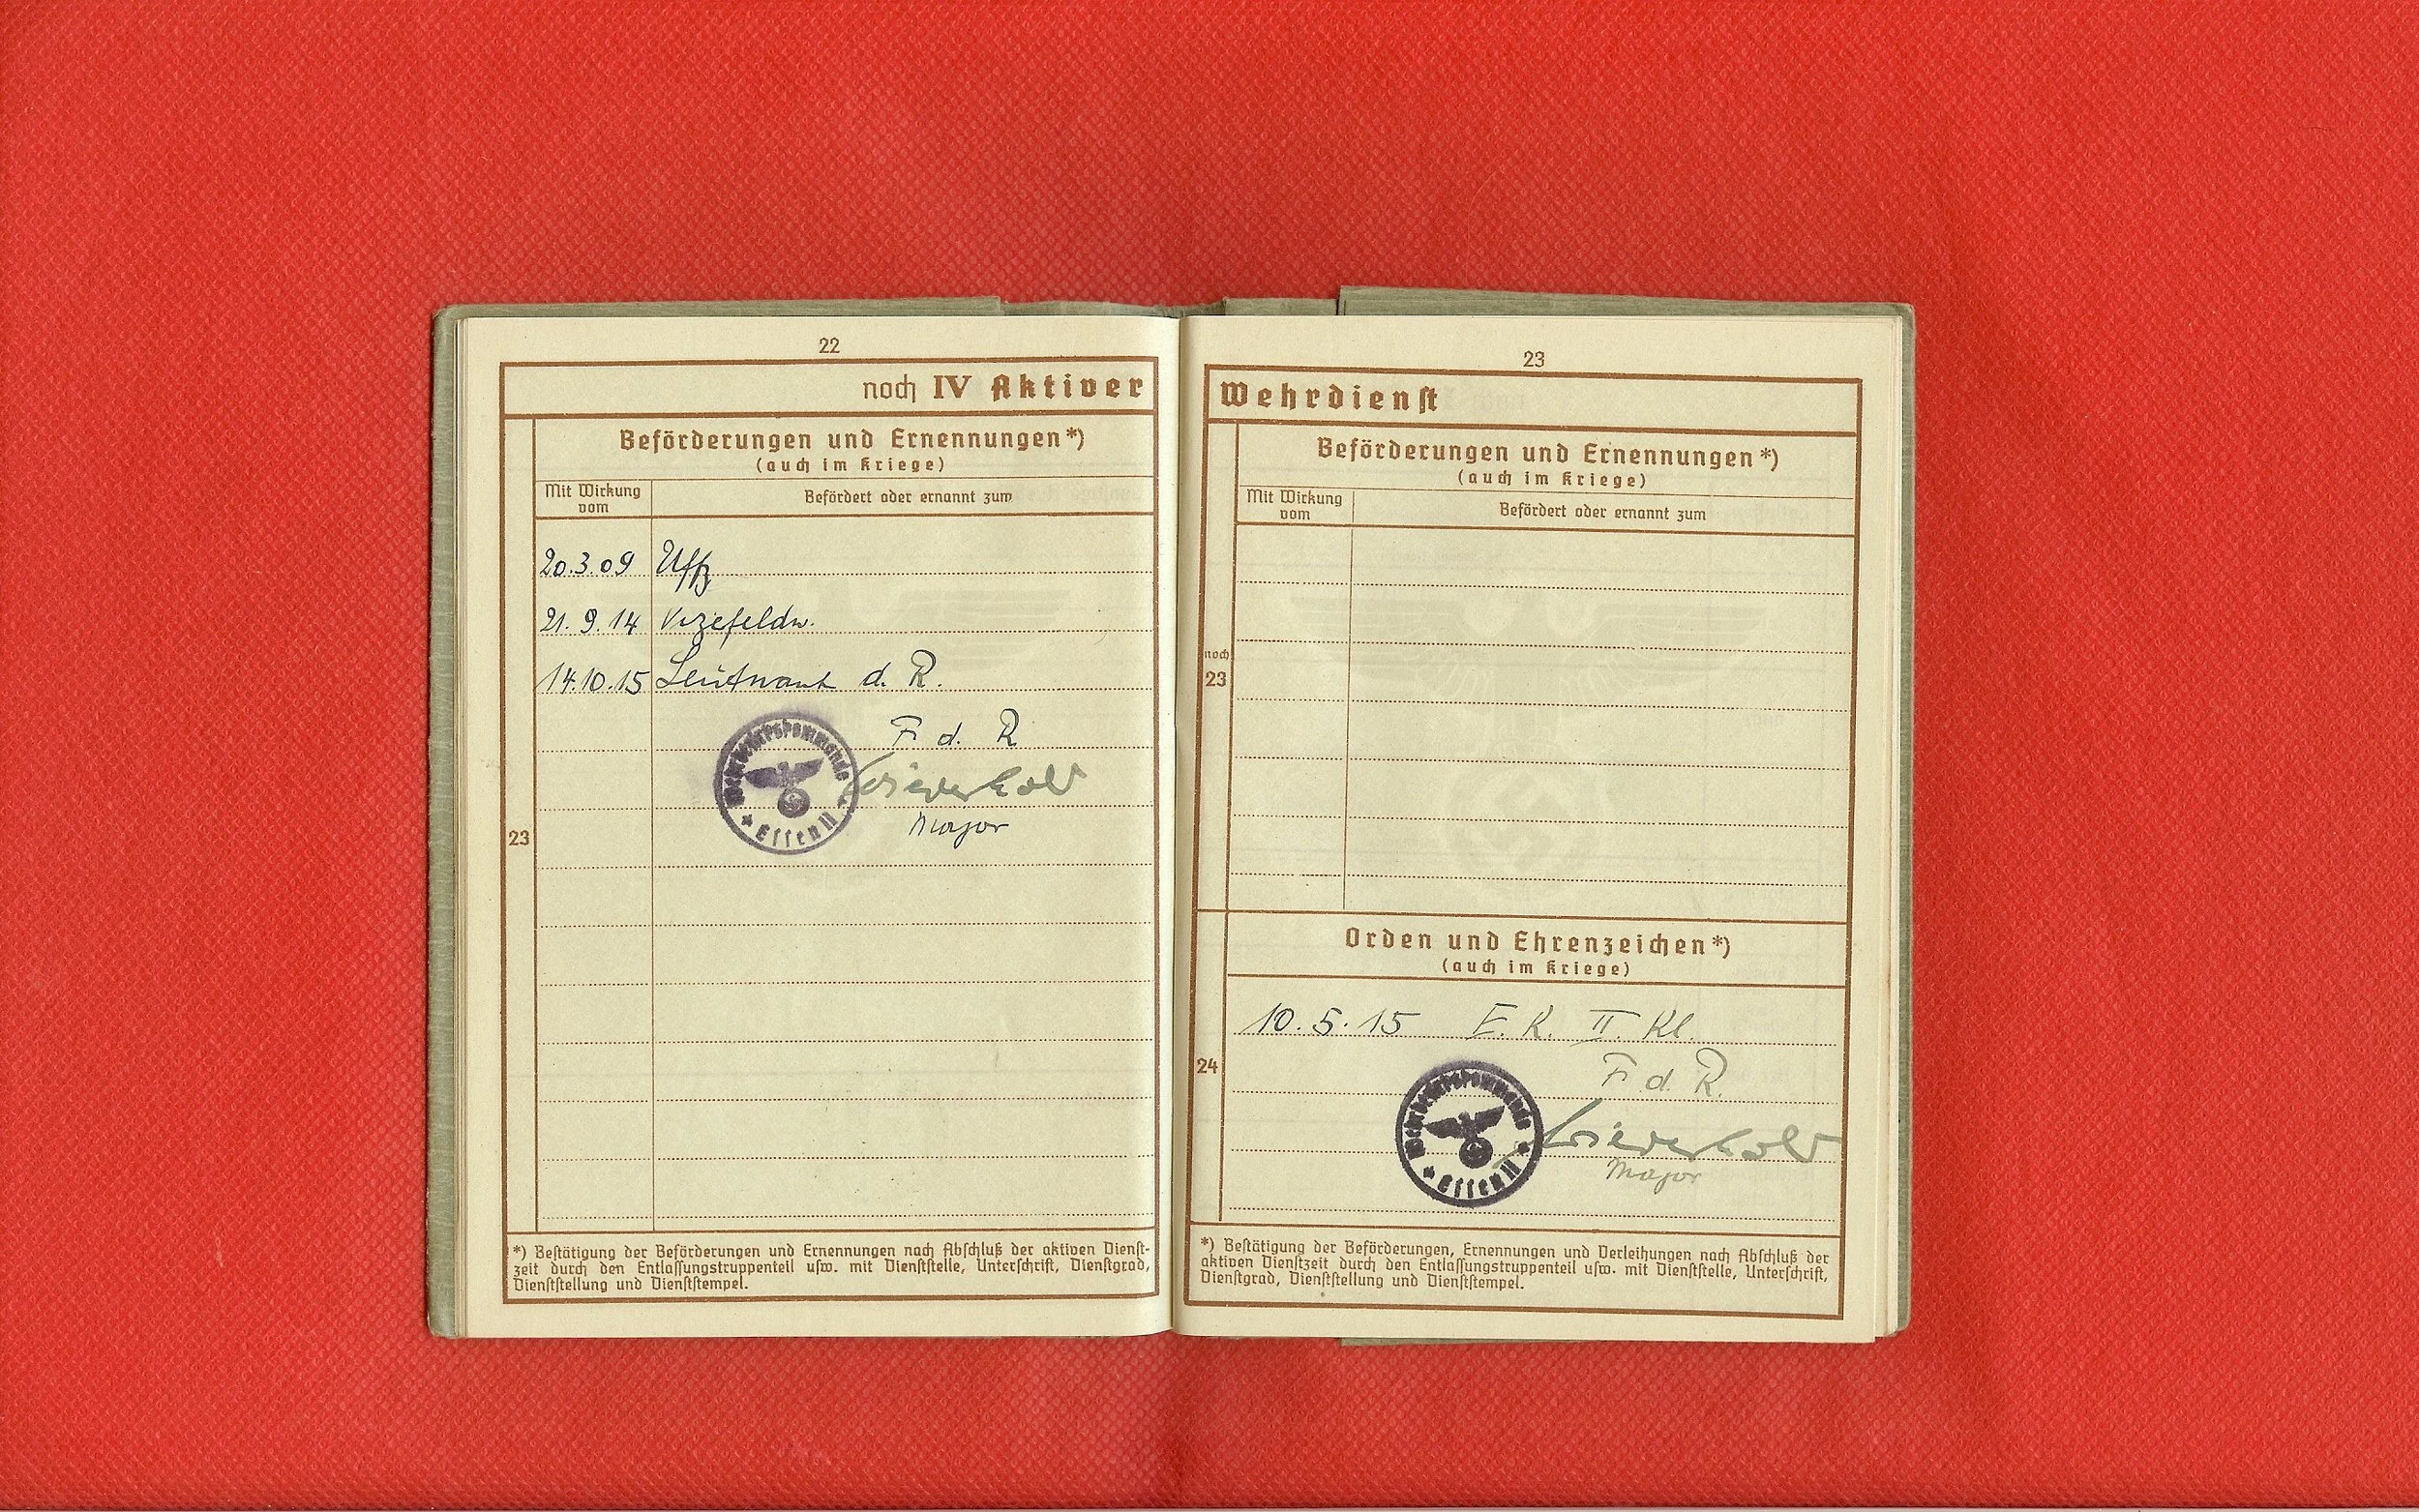 22
noch IV Aktiver
Beförderungen und Ernennungen*)
(auch im Kriege)
Mit Wirkung vom
Befördert oder ernannt zum
20.3.09 Uffz
21.9.14 Vizefeldw.
14.10.15 Leutnant d. R.
F. d. R.
Major
Wehrbezirkskommando
Essen II
23
*) Bestätigung der Beförderungen und Ernennungen nach Abschluß der aktiven Dienst-
zeit durch den Entlassungstruppenteil usw. mit Dienststelle, Unterschrift, Dienstgrad,
Dienststellung und Dienststempel.
23
Wehrdienst
Beförderungen und Ernennungen*)
(auch im Kriege)
Mit Wirkung vom
Befördert oder ernannt zum
noch
23
Orden und Ehrenzeichen*)
(auch im Kriege)
10.5.15 E.K. II. Kl.
24
F. d. R.
Major
Wehrbezirkskommando
Essen II
*) Bestätigung der Beförderungen, Ernennungen und Verleihungen nach Abschluß der
aktiven Dienstzeit durch den Entlassungstruppenteil usw. mit Dienststelle, Unterschrift,
Dienstgrad, Dienststellung und Dienststempel.